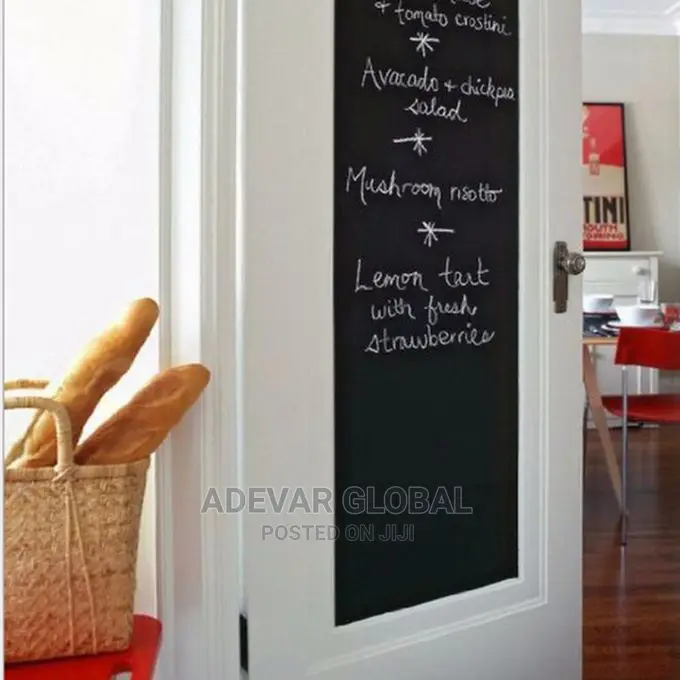 & tomato crostini
Avacado + chickpea
salad
Mushroom risotto
Lemon tart
with fresh
strawberries
TINI
ADEVAR GLOBAL
POSTED ON JIJI